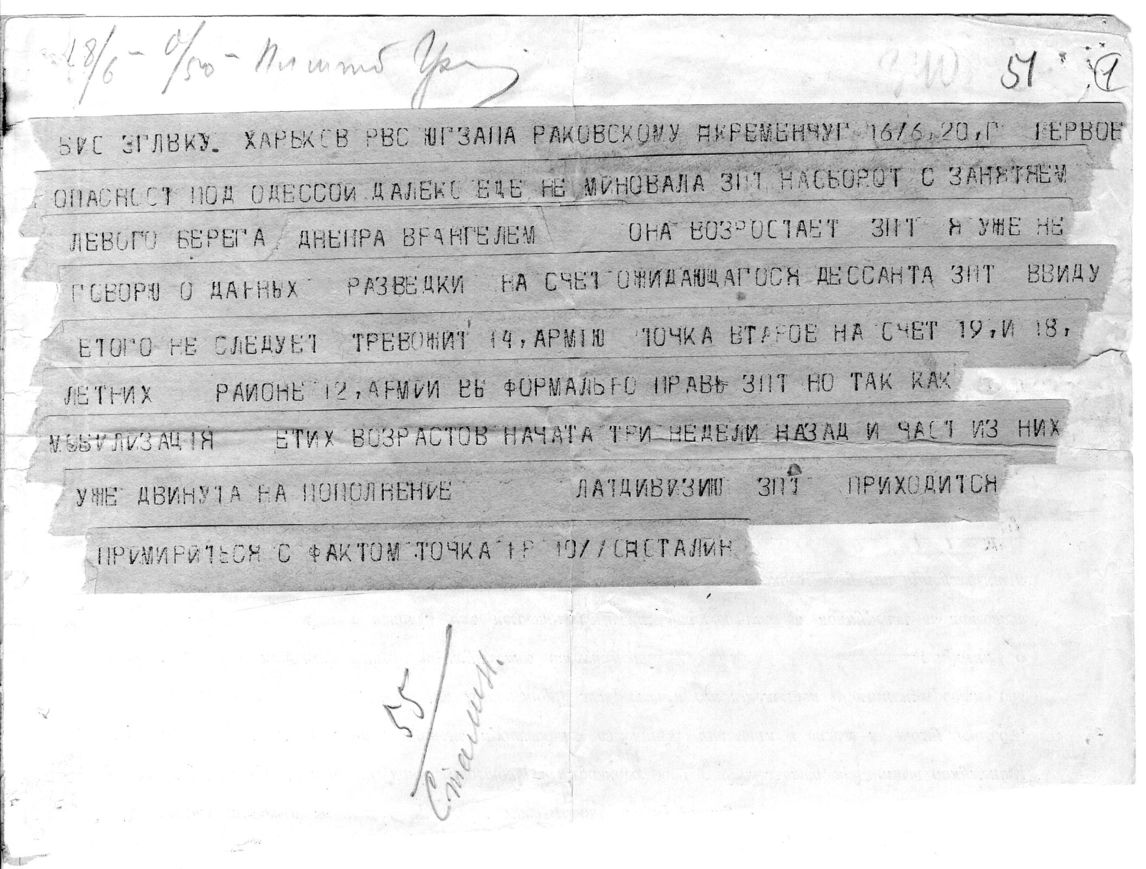 18/6 - 0/50 -
51
ХАРЬКОВ РВС ЮГЗАПА РАКОВСКОМУ КРЕМЕНЧУГ 16/6,20,Г ПЕРВОЕ
ОПАСНОСТ ПОД ОДЕССОЙ ДАЛЕКО ЕЩЕ НЕ МИНОВАЛА ЗПТ НАОБОРОТ С ЗАНЯТЯЕМ
ЛЕВОГО БЕРЕГА ДНЕПРА ВРАНГЕЛЕМ ОНА ВОЗРОСТАЕТ ЗПТ Я УЖЕ НЕ
ГОВОРЮ О ДАННЫХ РАЗВЕДКИ НА СЧЕТ ОЖИДАЮЩАГОСЯ ДЕССАНТА ЗПТ ВВИДУ
ЕТОГО НЕ СЛЕДУЕТ ТРЕВОЖИТ 14,АРМIЮ ТОЧКА ВТАРОЕ НА СЧЕТ 19,И 18,
ЛЕТНИХ РАЙОНЕ 12,АРМИИ ВЫ ФОРМАЛЬНО ПРАВЫ ЗПТ НО ТАК КАК
МОБИЛИЗАЦIЯ ЕТИХ ВОЗРАСТОВ НАЧАТА ТРИ НЕДЕЛИ НАЗАД И ЧАСТ ИЗ НИХ
УЖЕ ДВИНУТА НА ПОПОЛНЕНИЕ ЛАТДИВИЗИЮ ЗПТ ПРИХОДИТСЯ
ПРИМИРИТЬСЯ С ФАКТОМ ТОЧКА СТАЛИН
55
Сталин.